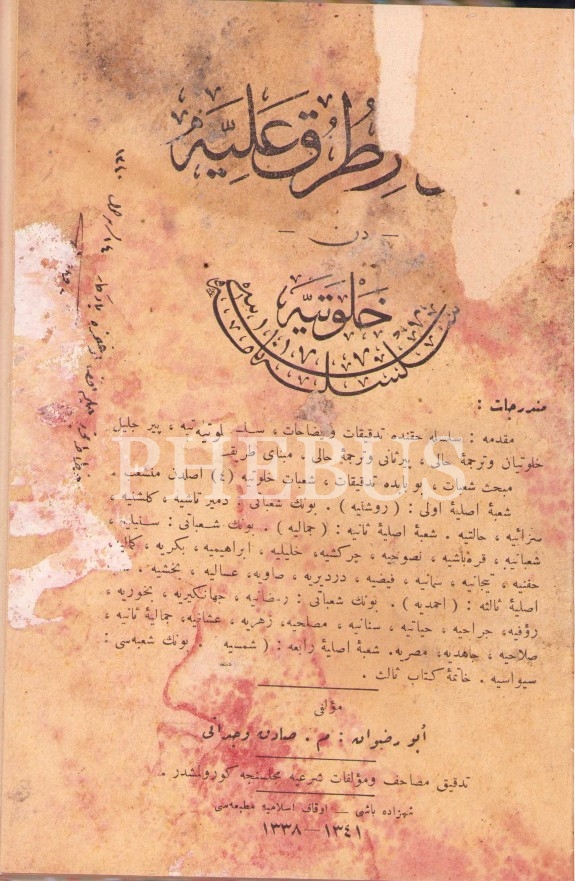 ر طُرُقِ عَلِيَّه
— دن —
خَلْوَتِيَّه
سلسلهٔ
PHEBUS
مندرجات :
مقدمه : سلسله حقنده تدقيقات وايضاحات ، سلسلهٔ خلوتيه ، پير جليل
خلوتيان وترجمهٔ حالى ، پيرثانى وترجمهٔ حالى . مبناى طريقت
مبحث شعبات ، بو بابده تدقيقات ، شعبات خلوتيه (٤) اصلدن منشعب .
شعبهٔ اصليهٔ اولى : ( روشنيه ) . بونك شعباتى : دمير تاشيه ، كلشنيه ،
سزائيه ، حالتيه . شعبهٔ اصليهٔ ثانيه : ( جماليه ) . بونك شعباتى : سنبليه ،
شعبانيه ، قره‌باشيه ، نصوحيه ، چركشيه ، خليليه ، ابراهيميه ، بكريه ، كماليه
حفنيه ، تيجانيه ، سمانيه ، فيضيه ، درديريه ، صاويه ، عساليه ، بخشيه
اصليهٔ ثالثه : ( احمديه ) . بونك شعباتى : رمضانيه ، جهانكيريه ، بخوريه ،
رؤفيه ، جراحيه ، حياتيه ، سنانيه ، مصلحيه ، زهريه ، عشاقيه ، جماليهٔ ثانيه ،
صلاحيه ، جاهديه ، مصريه . شعبهٔ اصليهٔ رابعه : ( شمسيه . بونك شعبه‌سى :
سيواسيه . خاتمهٔ كتاب ثالث .
مؤلفى
أبو رضوان : م . صادق وجدانى
تدقيق مصاحف ومؤلفات شرعيه مجلسنجه كورولمشدر .
شهزاده باشى — اوقاف اسلاميه مطبعه‌سى
١٣٤١—١٣٣٨
١٣٤٠